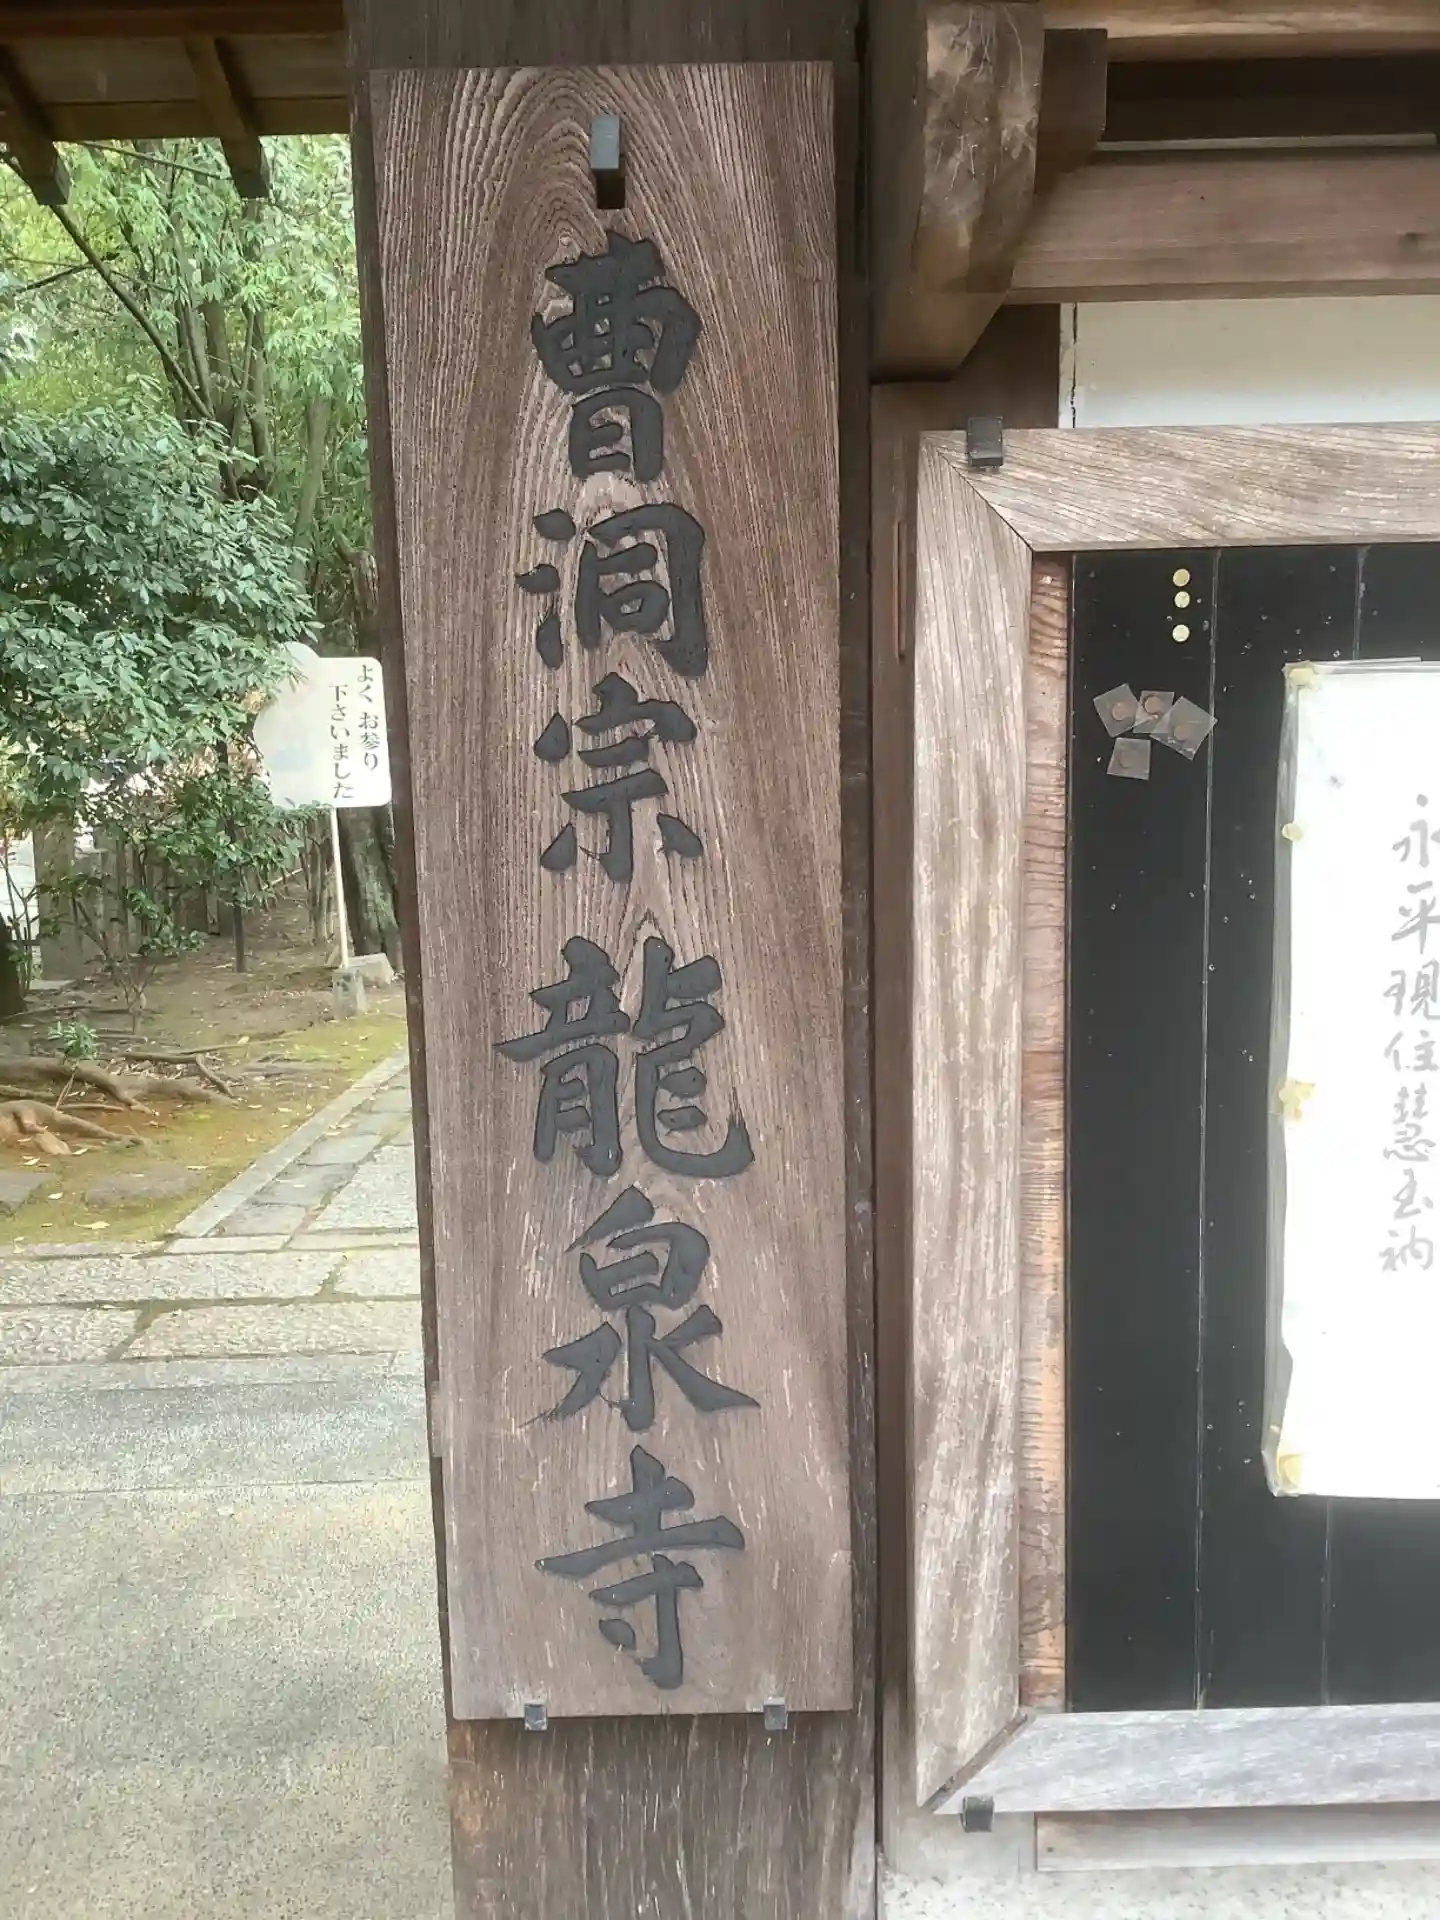 曹洞宗龍泉寺
よくお参り
下さいました
永平現住慧玉衲